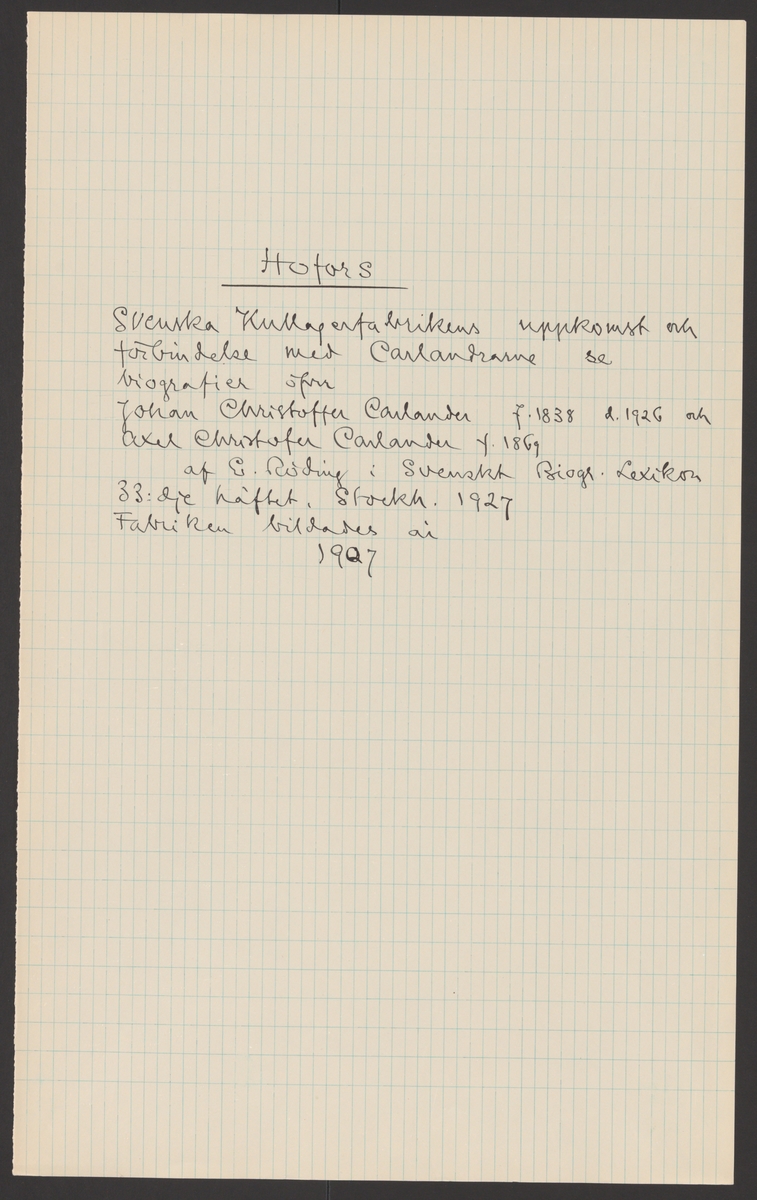 Hofors
Svenska Kullagerfabrikens uppkomst och
förbindelse med Carlandrarne se
biografier öfver
Johan Christoffer Carlander f. 1838 d. 1926 och
Axel Christofer Carlander f. 1869
af E. Röding i Svenskt Biogr. Lexikon
33:dje häftet. Stockh. 1927
Fabriken bildades år
1907